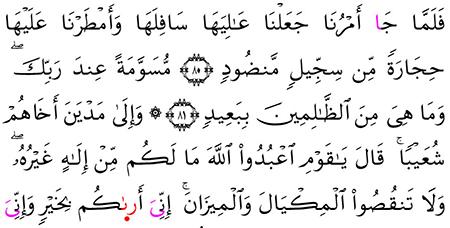 فَلَمَّا جَا أَمۡرُنَا جَعَلۡنَا عَٰلِيَهَا سَافِلَهَا وَأَمۡطَرۡنَا عَلَيۡهَا
حِجَارَةٗ مِّن سِجِّيلٖ مَّنضُودٖ ٨٥ مُّسَوَّمَةً عِندَ رَبِّكَۖ
وَمَا هِيَ مِنَ ٱلظَّٰلِمِينَ بِبَعِيدٖ ٨٦ ۞ وَإِلَىٰ مَدۡيَنَ أَخَاهُمۡ
شُعَيۡبٗاۚ قَالَ يَٰقَوۡمِ ٱعۡبُدُواْ ٱللَّهَ مَا لَكُم مِّنۡ إِلَٰهٍ غَيۡرُهُۥۖ
وَلَا تَنقُصُواْ ٱلۡمِكۡيَالَ وَٱلۡمِيزَانَۚ إِنِّيَ أَرىٰكُم بِخَيۡرٖ وَإِنِّيَ